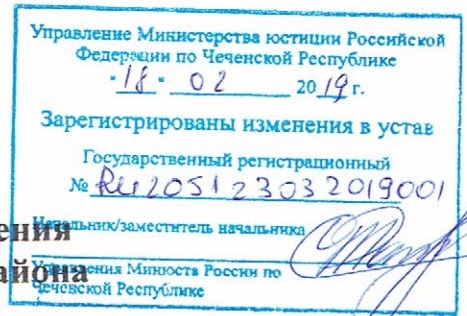 Управление Министерства юстиции Российской
Федерации по Чеченской Республике
"18" 02 2019 г.
Зарегистрированы изменения в устав
Государственный регистрационный
№ RU205123032019001
Начальник/заместитель начальника
ения
Управления Минюста России по
айона
Чеченской Республике